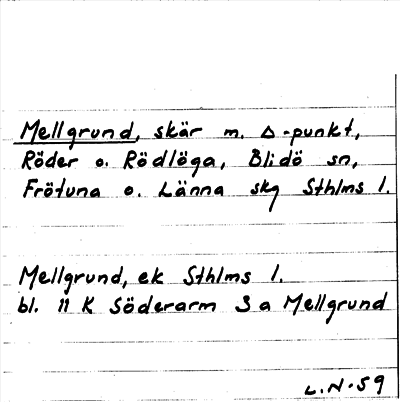 Mellgrund, skär m. △-punkt,
Röder o. Rödlöga, Blidö sn,
Frötuna o. Länna skg Sthlms l.
Mellgrund, ek Sthlms l.
bl. 11 K Söderarm S a Mellgrund
L.N.59